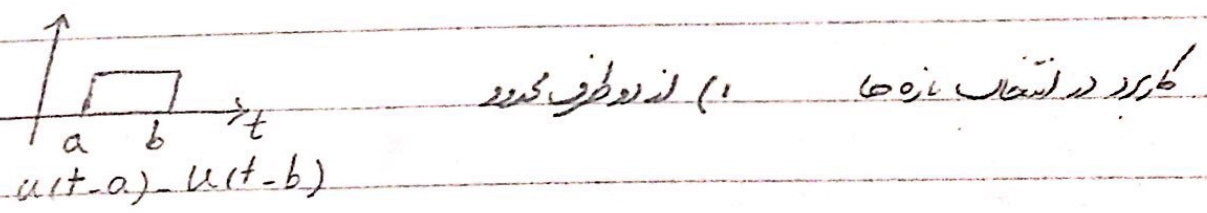 کاربرد در انتخاب بازه ها ۱) از دو طرف محدود
a b t
u(t-a)-u(t-b)